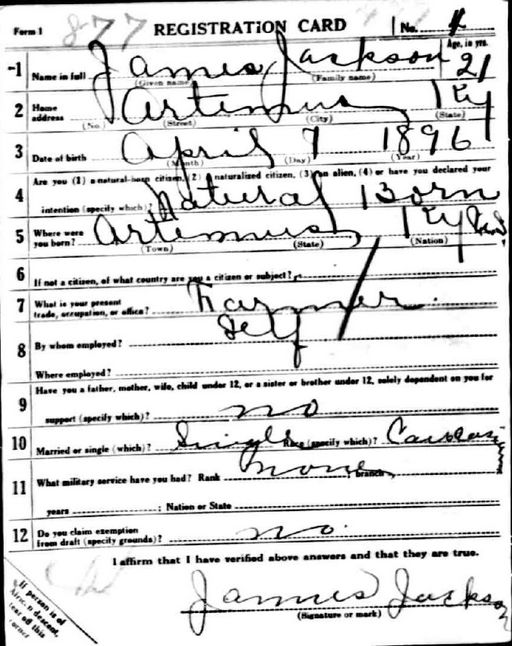 Form 1 877 REGISTRATION CARD No. 4
1 Name in full James Jackson Age, in yrs. 21
(Given name) (Family name)
2 Home address Artemus Ky
(No.) (Street) (City) (State)
3 Date of birth April 7 1896
(Month) (Day) (Year)
4 Are you (1) a natural-born citizen, (2) a naturalized citizen, (3) an alien, (4) or have you declared your
intention (specify which)? Natural Born
5 Where were you born? Artemus Ky
(Town) (State) (Nation)
6 If not a citizen, of what country are you a citizen or subject?
7 What is your present trade, occupation, or office? Farmer
8 By whom employed? Self
Where employed?
9 Have you a father, mother, wife, child under 12, or a sister or brother under 12, solely dependent on you for
support (specify which)? no
10 Married or single (which)? Single Race (specify which)? Caucas
11 What military service have you had? Rank None branch
years ; Nation or State
12 Do you claim exemption from draft (specify grounds)? no.
I affirm that I have verified above answers and that they are true.
James Jackson
(Signature or mark)
If person is of
African descent,
tear off this
corner